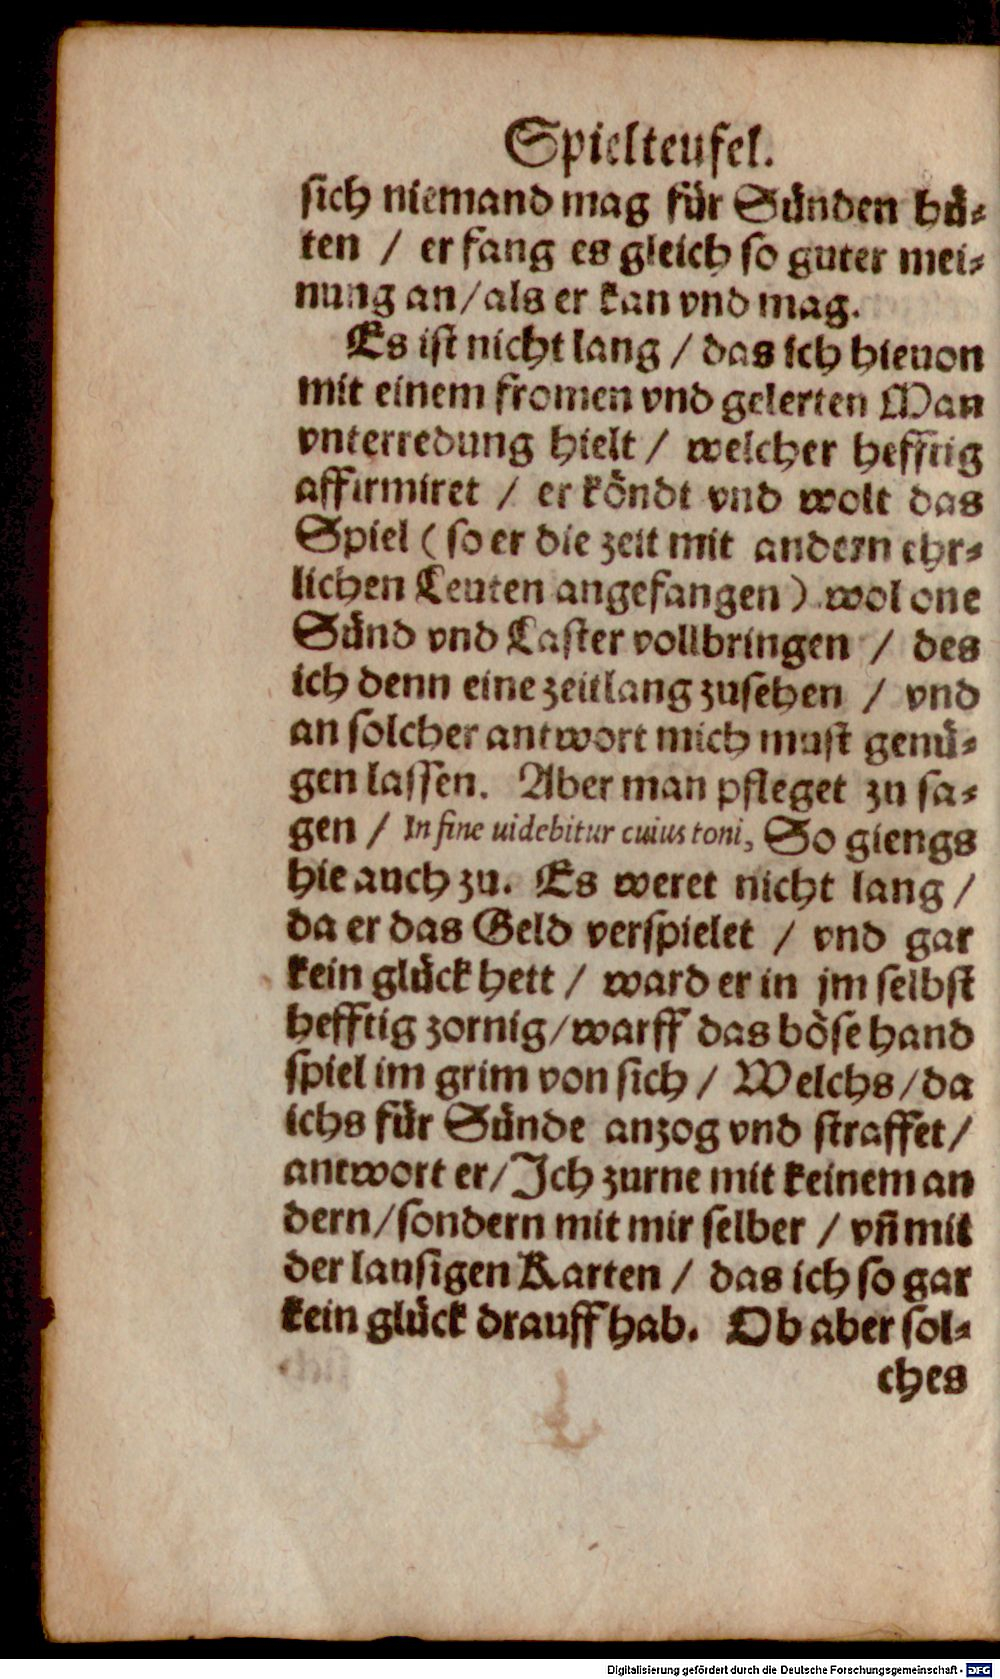 Spielteufel.
sich niemand mag für Sünden hü-
ten / er fang es gleich so guter mei-
nung an/als er kan vnd mag.
Es ist nicht lang / das ich hieuon
mit einem fromen vnd gelerten Man
vnterredung hielt / welcher hefftig
affirmiret / er köndt vnd wolt das
Spiel (so er die zeit mit andern ehr-
lichen Leuten angefangen) wol one
Sünd vnd Laster vollbringen / des
ich denn eine zeitlang zusehen / vnd
an solcher antwort mich must genü-
gen lassen. Aber man pfleget zu sa-
gen / In fine uidebitur cuius toni, So giengs
hie auch zu. Es weret nicht lang /
da er das Geld verspielet / vnd gar
kein glück hett / ward er in jm selbst
hefftig zornig/warff das böse hand
spiel im grim von sich / Welchs/da
ichs für Sünde anzog vnd straffet/
antwort er/Ich zurne mit keinem an
dern/sondern mit mir selber / vñ mit
der lausigen Karten / das ich so gar
kein glück drauff hab. Ob aber sol-
ches
Digitalisierung gefördert durch die Deutsche Forschungsgemeinschaft - DFG